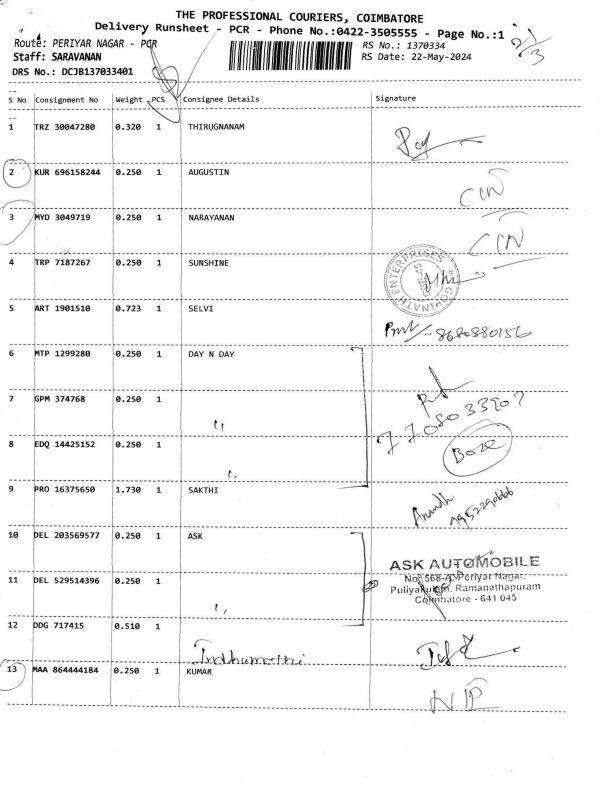 THE PROFESSIONAL COURIERS, COIMBATORE
Delivery Runsheet - PCR - Phone No.:0422-3505555 - Page No.:1
2/3
Route: PERIYAR NAGAR - PCR
RS No.: 1370334
Staff: SARAVANAN
RS Date: 22-May-2024
DRS No.: DCJB137033401
S No Consignment No Weight PCS Consignee Details Signature
1 TRZ 30047280 0.320 1 THIRUGNANAM
2 KUR 696158244 0.250 1 AUGUSTIN
3 MYD 3049719 0.250 1 NARAYANAN
4 TRP 7187267 0.250 1 SUNSHINE
GOWINATH ENTERPRISES
5 ART 1901510 0.723 1 SELVI
8680880156
6 MTP 1299280 0.250 1 DAY N DAY
7 GPM 374768 0.250 1 "
7708033907
8 EDQ 14425152 0.250 1 "
9 PRO 16375650 1.730 1 SAKTHI
10 DEL 203569577 0.250 1 ASK
ASK AUTOMOBILE
No. 568-A, Periyar Nagar,
11 DEL 529514396 0.250 1 "
Puliyakulam, Ramanathapuram
Coimbatore - 641 045
12 DDG 717415 0.510 1
Indhumathi
13 MAA 864444184 0.250 1 KUMAR